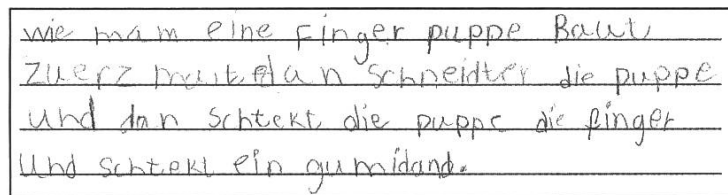 wie mam eine Finger puppe Baut
Zuerz malt dan schneidter die puppe
und dan schtekt die puppe die finger
Und schtekt ein gumidand.